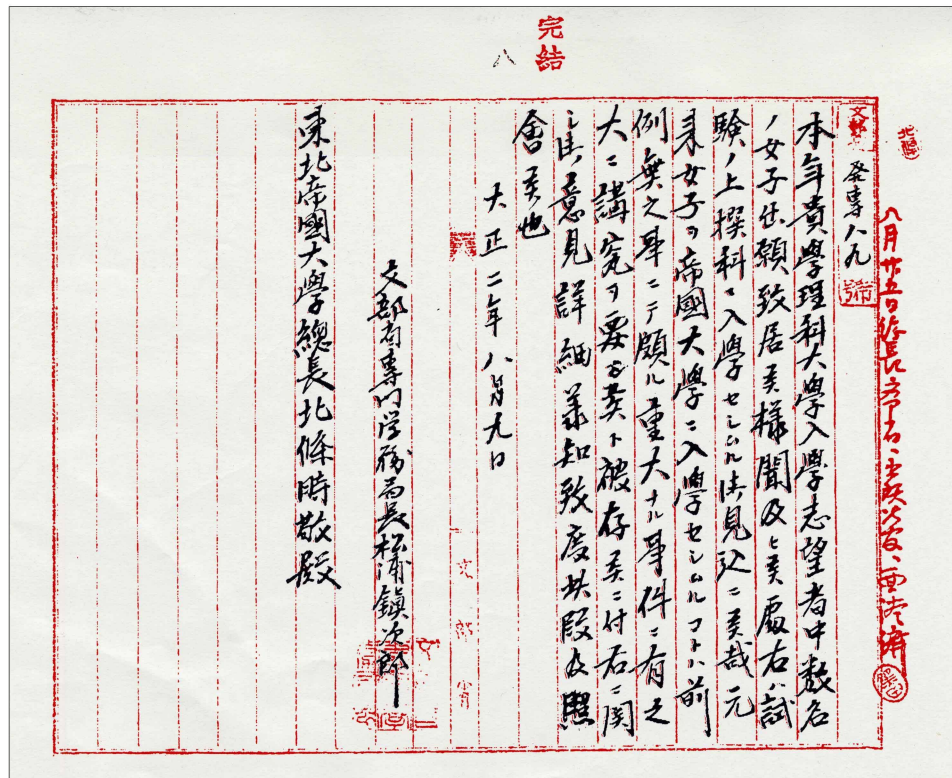 完結
八
北條
八月廿五日
文部省
發專八九號
本年貴學理科大學入學志望者中数名
ノ女子出願致居候様聞及ヒ候處右ハ試
驗ノ上撰科ニ入學セシムル御見込ニ候哉元
来女子ヲ帝國大學ニ入學セシムルコトハ前
例無之事ニテ頗ル重大ナル事件ニ有之
大ニ講究ヲ要シ候ト被存候ニ付右ニ関
シ御意見詳細羕知致度此段及照
會候也
大正二年八月九日
文部省專門学務局長松浦鎮次郎
東北帝國大學總長北條時敬殿
文部省